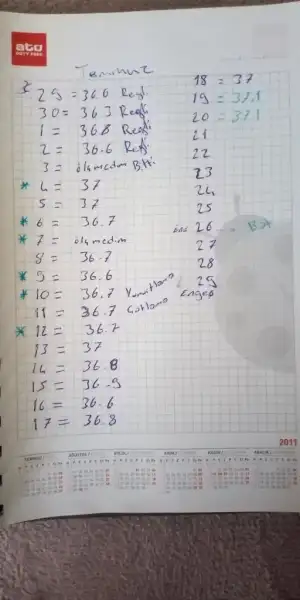 ato
Temmuz
29 = 36.6 Regl.
30 = 36.3 Regl.
1 = 36.8 Regl.
2 = 36.6 Regl.
3 = ölçmedim Bitti
* 4 = 37
5 = 37
* 6 = 36.7
* 7 = ölçmedim
8 = 36.7
* 9 = 36.6
* 10 = 36.7 Yumurtlama
11 = 36.7 Çatlama
* 12 = 36.7
13 = 37
14 = 36.8
15 = 36.9
16 = 36.6
17 = 36.8
18 = 37
19 = 37.1
20 = 37.1
21
22
23
24
25
26
27
28
29
2011